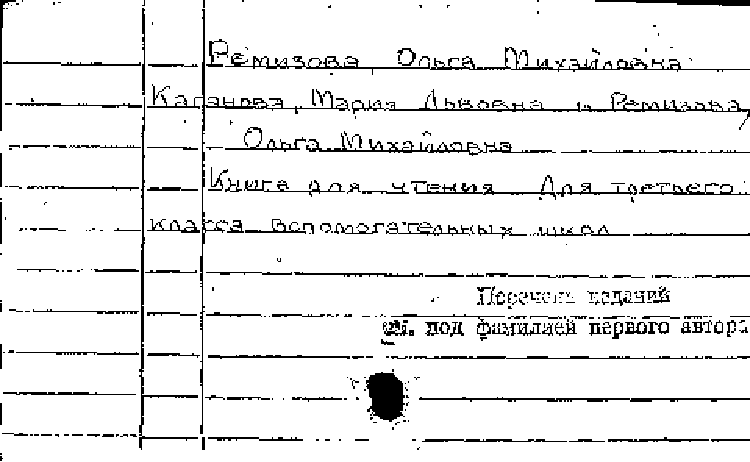 Ремизова, Ольга Михайловна
Каганова, Мария Львовна и Ремизова,
Ольга Михайловна
Книга для чтения Для третьего
класса вспомогательных школ
Перечень изданий
см. под фамилией первого автора